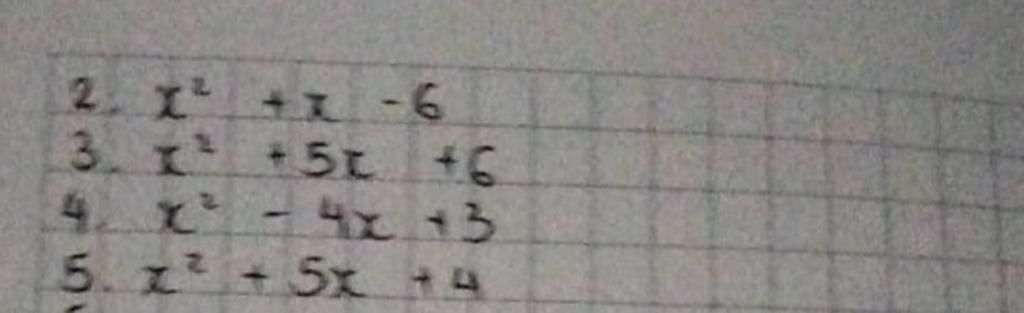 2. x² + x - 6
3. x² + 5x + 6
4. x² - 4x + 3
5. x² + 5x + 4